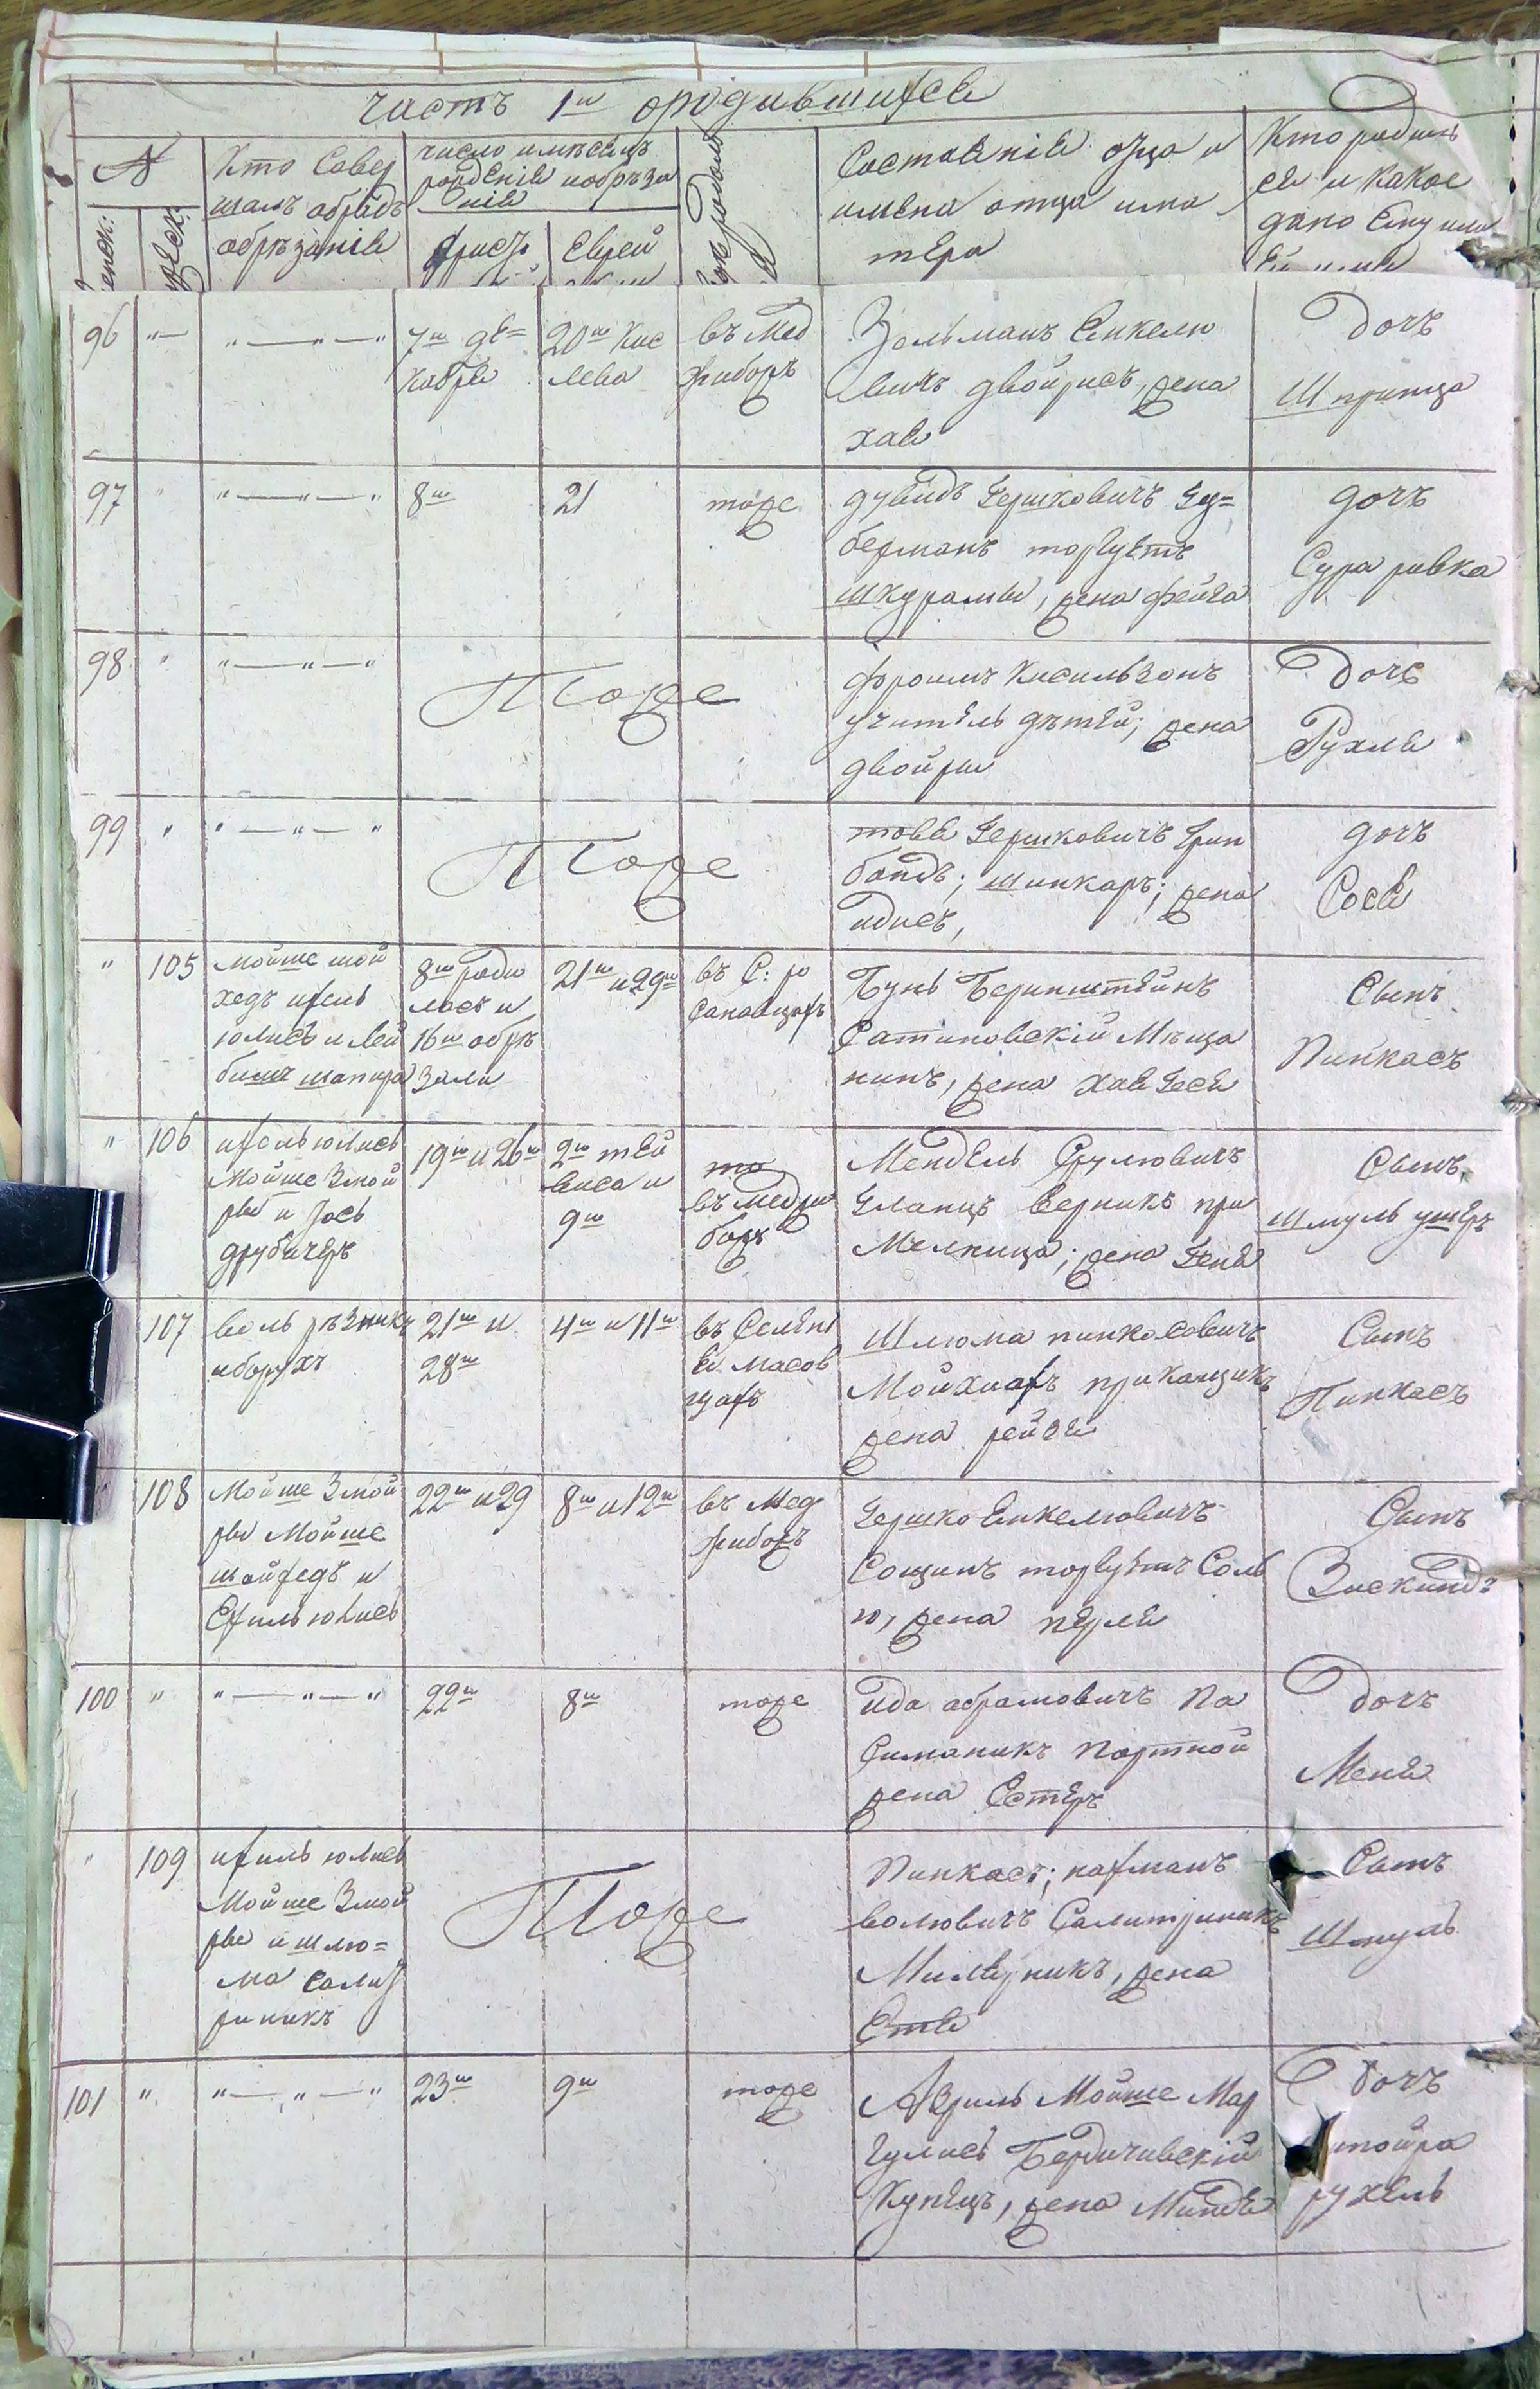 часть 1ш ородившихся
№
Кто Совер
шалъ обрядъ
обрѣзанія
число имѣсяцъ
рожденія иобрѣза
нія
Христі
Еврей
Состояніе отца и
имена отца има
тера
Кто родил
ся и какое
дано Ему или
Ей имя
96 "— "—"—" 7ш де=
кабря
20ш Кис
лева
въ Мед
жибожъ
Зольманъ Енкелю
вичъ двойрисъ, жена
хая
дочь
Шпринца
97 " "—"—" 8ш 21 тоже
дувидъ Гершковичъ Гу=
берманъ торгуетъ
шкурами, жена фейга
дочь
Сура ривка
98 " "—"—" Тоже
фроимъ Кисильзонъ
учитель дѣтей; жена
двойри
дочь
Рухля
99 " "—"—" Тоже
товя Гершковичъ Грин
боидъ; шинкаръ; жена
идисъ,
дочь
Сося
" 105 мойше шой
хедъ ихель
юлисъ и лей
бишъ шапира
8ш роди
лось и
16ш обрѣ
зали
21ш и 29ш
въ С: ро
сановцахъ
Бунь Беринштейнъ
Сатановскій Мѣща
нинъ, жена хая Гося
Сынъ
Пинкасъ
" 106 ихель юлисъ
Мойше Змой
ры и Іось
друбичеръ
19ш и 26ш
2ш тей
виса и
9ш
то
въ меджи
божъ
Мендель Срулювичъ
Гланцъ верникъ при
Мелница; жена Геня
Сынъ
Шмуль ушеръ
107 воль рѣзникъ
иборухъ
21ш и
28ш
4ш и 11ш
въ Селені
Я масов
цахъ
Шлюма пинкасовичъ
Мойхиахъ прикащикъ
жена рейзя
Сынъ
Пинкасъ
108 Мойше Змой
ры Мойше
шойхедъ и
Ехиль юлисъ
22ш и 29
8ш и 12ш
въ Мед
жибожъ
Гершко Енкелювичъ
Сощинъ торгуетъ Соль
ю, жена перля
Сынъ
Зискиндъ
100 " "—"—" 22ш 8ш тоже
ида абрамовичъ Па
Симаникъ портной
жена Естеръ
дочь
Меня
" 109 ихиль юлисъ
Мойше Змой
ры и шлю=
ма салит
риникъ
Тоже
Пинкасъ; нахманъ
волювичъ Салитриникъ
Милерникъ, жена
Етя
Сынъ
Шмуль
101 " "—"—" 23ш 9ш тоже
Азриль Мойше Мар
гулисъ Бердичивскій
Купецъ, жена Миндя
дочь
тойра
рухель